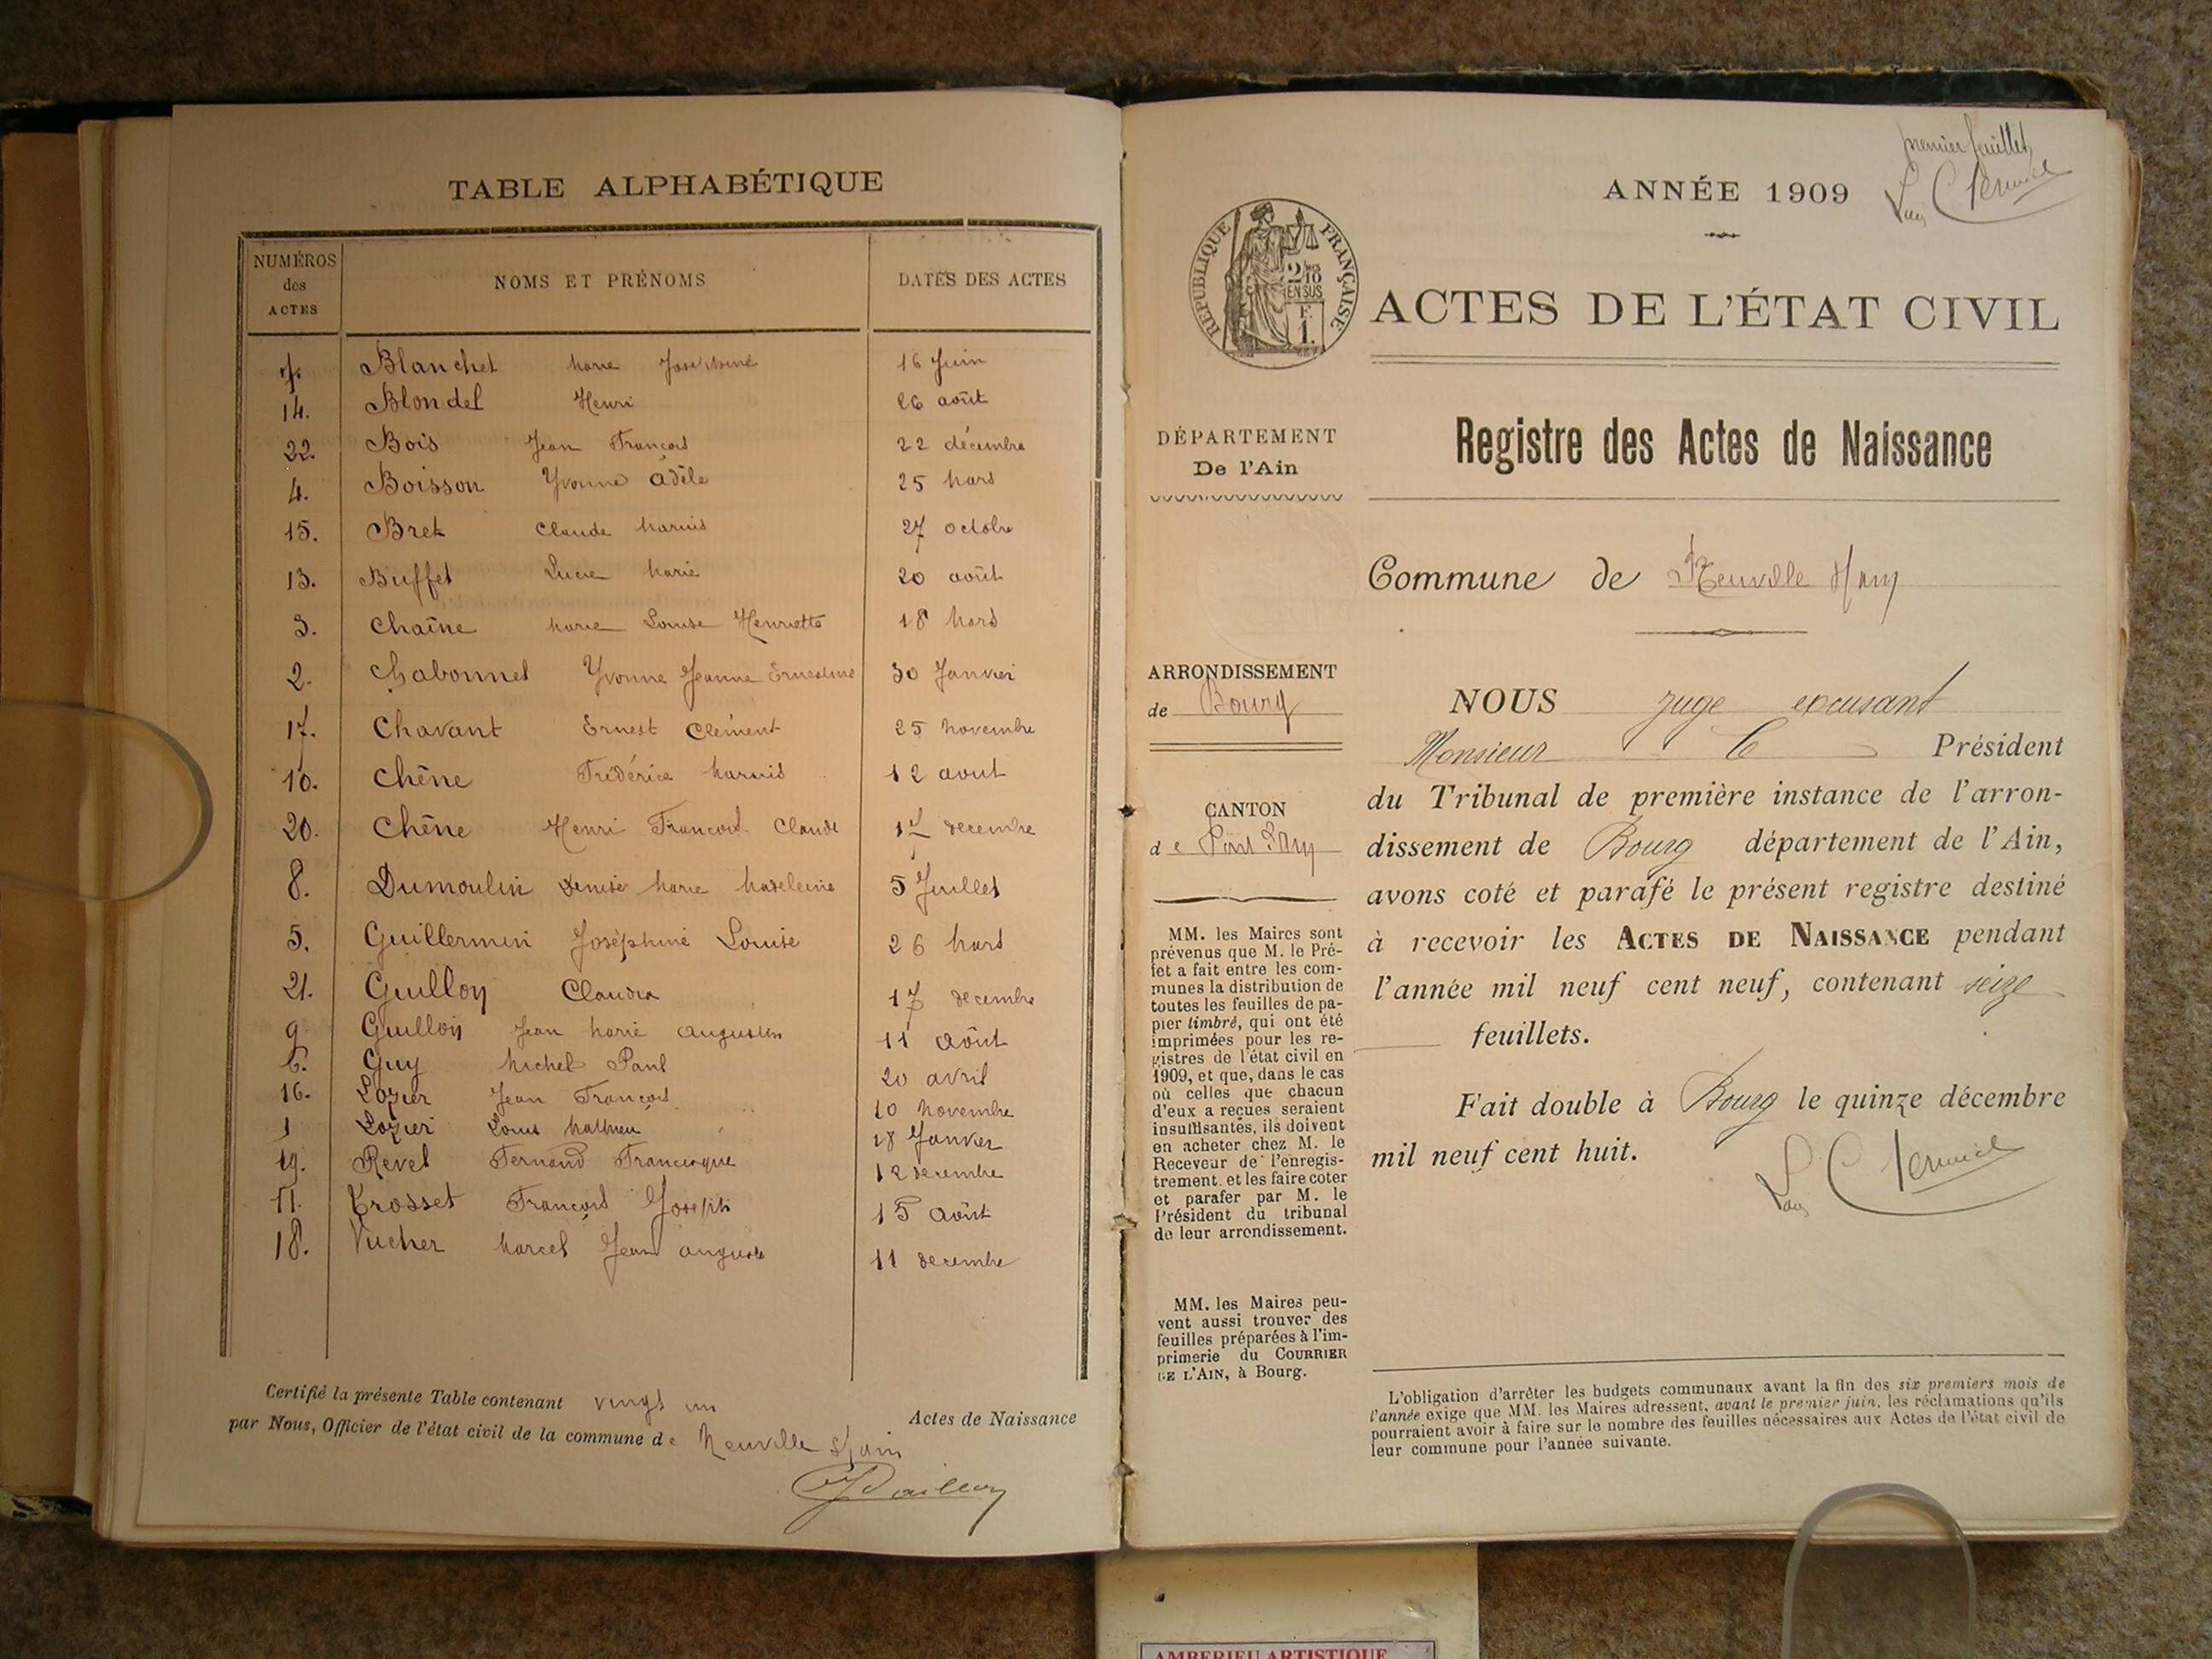 TABLE ALPHABÉTIQUE
NUMÉROS des ACTES NOMS ET PRÉNOMS DATES DES ACTES
7. Blanchet Marie Joséphine 16 Juin
14. Blondel Henri 26 août
22. Bois Jean François 22 décembre
4. Boisson Yvonne Adèle 25 Mars
15. Bret Claude Marius 27 octobre
13. Buffet Lucie Marie 20 août
3. Chaîne Marie Louise Henriette 18 Mars
2. Chabonnet Yvonne Jeanne Ernestine 30 Janvier
17. Chavant Ernest Clément 25 Novembre
10. Chêne Frédéric Marius 12 aout
20. Chêne Henri François Claude décembre
8. Dumoulin Denise Marie Madeleine 5 Juillet
5. Guillermin Joséphine Louise 26 Mars
21. Guilloy Claudia 17 décembre
9. Guilloy Jean Marie Augustin 11 Août
6. Guy Michel Paul 20 avril
16. Lozier Jean François 10 Novembre
1 Lozier Louis Mathieu 28 Janvier
19. Revel Fernand Francisque 12 décembre
11. Trosset François Joseph 15 Août
18. Vucher Marcel Jean Auguste 11 décembre
Certifié la présente Table contenant vingt un Actes de Naissance
par Nous, Officier de l'état civil de la commune de Neuville s/ ain
ANNÉE 1909
premier feuillet
RÉPUBLIQUE FRANÇAISE
2/10 EN SUS
F. 1.
ACTES DE L'ÉTAT CIVIL
Registre des Actes de Naissance
DÉPARTEMENT
De l'Ain
Commune de Neuville s/ Ain
ARRONDISSEMENT
de Bourg
CANTON
de Pont d'Ain
MM. les Maires sont
prévenus que M. le Pré-
fet a fait entre les com-
munes la distribution de
toutes les feuilles de pa-
pier timbré, qui ont été
imprimées pour les re-
gistres de l'état civil en
1909, et que, dans le cas
où celles que chacun
d'eux a reçues seraient
insuffisantes, ils doivent
en acheter chez M. le
Receveur de l'enregis-
trement, et les faire coter
et parafer par M. le
Président du tribunal
de leur arrondissement.
MM. les Maires peu-
vent aussi trouver des
feuilles préparées à l'im-
primerie du COURRIER
DE L'AIN, à Bourg.
NOUS juge excusant
Monsieur le Président
du Tribunal de première instance de l'arron-
dissement de Bourg département de l'Ain,
avons coté et parafé le présent registre destiné
à recevoir les ACTES DE NAISSANCE pendant
l'année mil neuf cent neuf, contenant seize
feuillets.
Fait double à Bourg le quinze décembre
mil neuf cent huit.
L'obligation d'arrêter les budgets communaux avant la fin des six premiers mois de
l'année exige que MM. les Maires adressent, avant le premier juin, les réclamations qu'ils
pourraient avoir à faire sur le nombre des feuilles nécessaires aux Actes de l'état civil de
leur commune pour l'année suivante.
AMBERIEU ARTISTIQUE